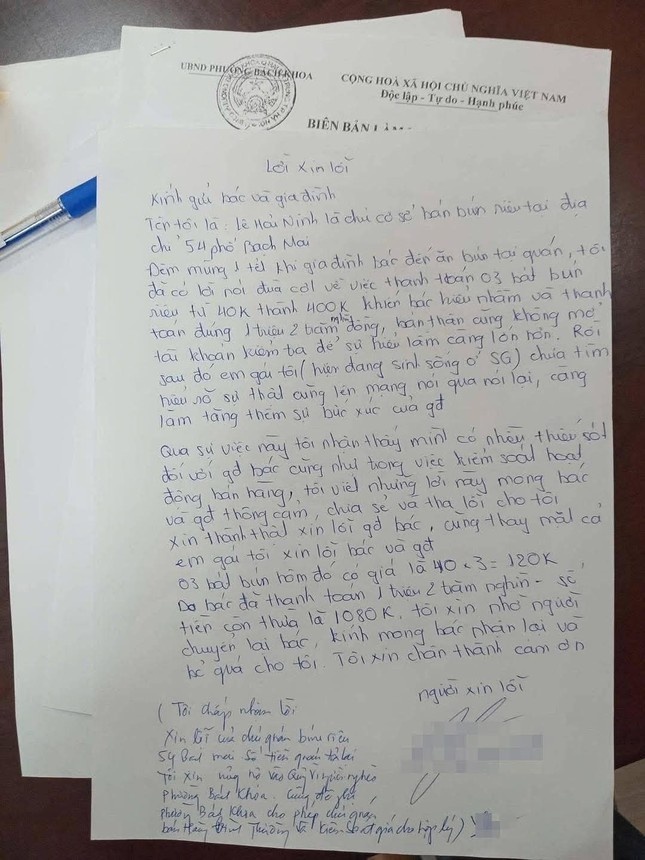 UBND PHƯỜNG BÁCH KHOA
CỘNG HOÀ XÃ HỘI CHỦ NGHĨA VIỆT NAM
Độc lập - Tự do - Hạnh phúc
BIÊN BẢN
Lời xin lỗi
Kính gửi bác và gia đình
Tên tôi là: Lê Hải Ninh là chủ cơ sở bán bún riêu tại địa
chỉ 54 phố Bạch Mai
Đêm mùng 1 tết khi gia đình bác đến ăn bún tại quán, tôi
đã có lời nói đùa cợt về việc thanh toán 03 bát bún
riêu từ 40K thành 400K khiến bác hiểu nhầm và thanh
toán đúng 1 triệu 2 trăm nghìn đồng, bản thân cũng không mở
tài khoản kiểm tra để sự hiểu lầm càng lớn hơn. Rồi
sau đó em gái tôi (hiện đang sinh sống ở SG) chưa tìm
hiểu rõ sự thật cũng lên mạng nói qua nói lại, càng
làm tăng thêm sự bức xúc của gđ
Qua sự việc này tôi nhận thấy mình có nhiều thiếu sót
đối với gđ bác cũng như trong việc kiểm soát hoạt
động bán hàng, tôi viết những lời này mong bác
và gđ thông cảm, chia sẻ và tha lỗi cho tôi
Xin thành thật xin lỗi gđ bác, cũng thay mặt cả
em gái tôi xin lỗi bác và gđ
03 bát bún hôm đó có giá là 40 x 3 = 120K
Do bác đã thanh toán 1 triệu 2 trăm nghìn - số
tiền còn thừa là 1080K, tôi xin nhờ người
chuyển lại bác, kính mong bác nhận lại và
bỏ qua cho tôi. Tôi xin chân thành cảm ơn
người xin lỗi
( Tôi chấp nhận lời
Xin lỗi của chủ quán bún riêu
54 Bạch mai số tiền quán trả lại
Tôi xin ủng hộ vào Quỹ Vì người nghèo
Phường Bách Khoa. Cũng đề nghị
phường Bách Khoa cho phép chủ quán
bán hàng bình thường và kiểm soát giá cho hợp lý )